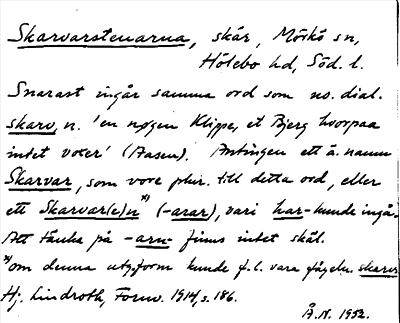 Skarvarstenarna, skär, Mörkö sn,
Hölebo hd, Söd. l.
Snarast ingår samma ord som no. dial.
skarv, n. 'en nøgen Klippe, et Bjerg hvorpaa
intet voxer' (Aasen). Antingen ett ä. namn
Skarvar, som vore plur. till detta ord, eller
ett Skarvar(e)n *) (-arar), vari har- kunde ingå.
Att tänka på -arn- finns intet skäl.
*) om denna utg.form kunde f.l. vara fågeln skarv
Hj. Lindroth, Fornv. 1914, s. 186.
Å.N. 1952.